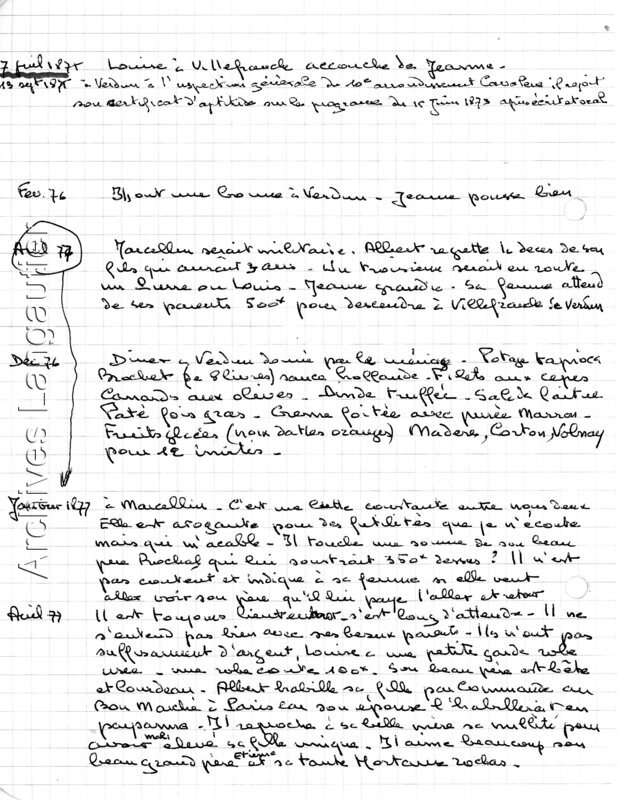 7 Juil 1875 Louise à Villefranche accouche de Jeanne -
13 sept 1875 à Verdun à l'inspection générale du 10e arrondissement Cavalerie il reçoit
son certificat d'aptitude sur le programme du 15 Juin 1873 après écrit et oral
Fev. 76 Ils ont une bonne à Verdun - Jeanne pousse bien
Avril 77 Marcellin serait militaire. Albert regrette le deces de son
fils qui aurait 3 ans - Un troisieme serait en route
un Pierre ou Louis - Jeanne grandit - Sa femme attend
de ses parents 500x pour descendre à Villefranche de Verdun
Déc 76 Diner à Verdun donné par le ménage - Potage tapioca
Brochet (de 8 livres) sauce hollande - Filets aux cepes
Canards aux olives - Dinde truffée - Salade laitue
Paté fois gras - Creme foitée avec purée Marron -
Fruits glacées (noix dattes oranges) Madere, Corton, Volnay
pour 12 invités -
Janvier 1877 à Marcellin - C'est une lutte constante entre nous deux
Elle est arogante pour des futilités que je n'écoute
mais qui m'acable - Il touche une somme de son beau
pere Rochas qui lui soustrait 350x dessus ? Il n'est
pas content et indique à sa femme si elle veut
aller voir son père qu'il lui paye l'aller et retour
Avril 77 Il est toujours lieutenant - s'est long d'attendre - Il ne
s'entend pas bien avec ses beaux parents - Ils n'ont pas
suffisament d'argent, Louise a une petite garde robe
usée - une robe coute 100x. Son beau père est bête
et lourdeau - Albert habille sa fille par Commande au
Bon Marché à Paris car son épouse l'habillerait en
paysanne - Il reproche à sa belle mère sa nullité pour
avoir mal élevé sa fille unique. Il aime beaucoup son
beau grand père Etienne et sa tante Hortense rochas.
Archives Langautier